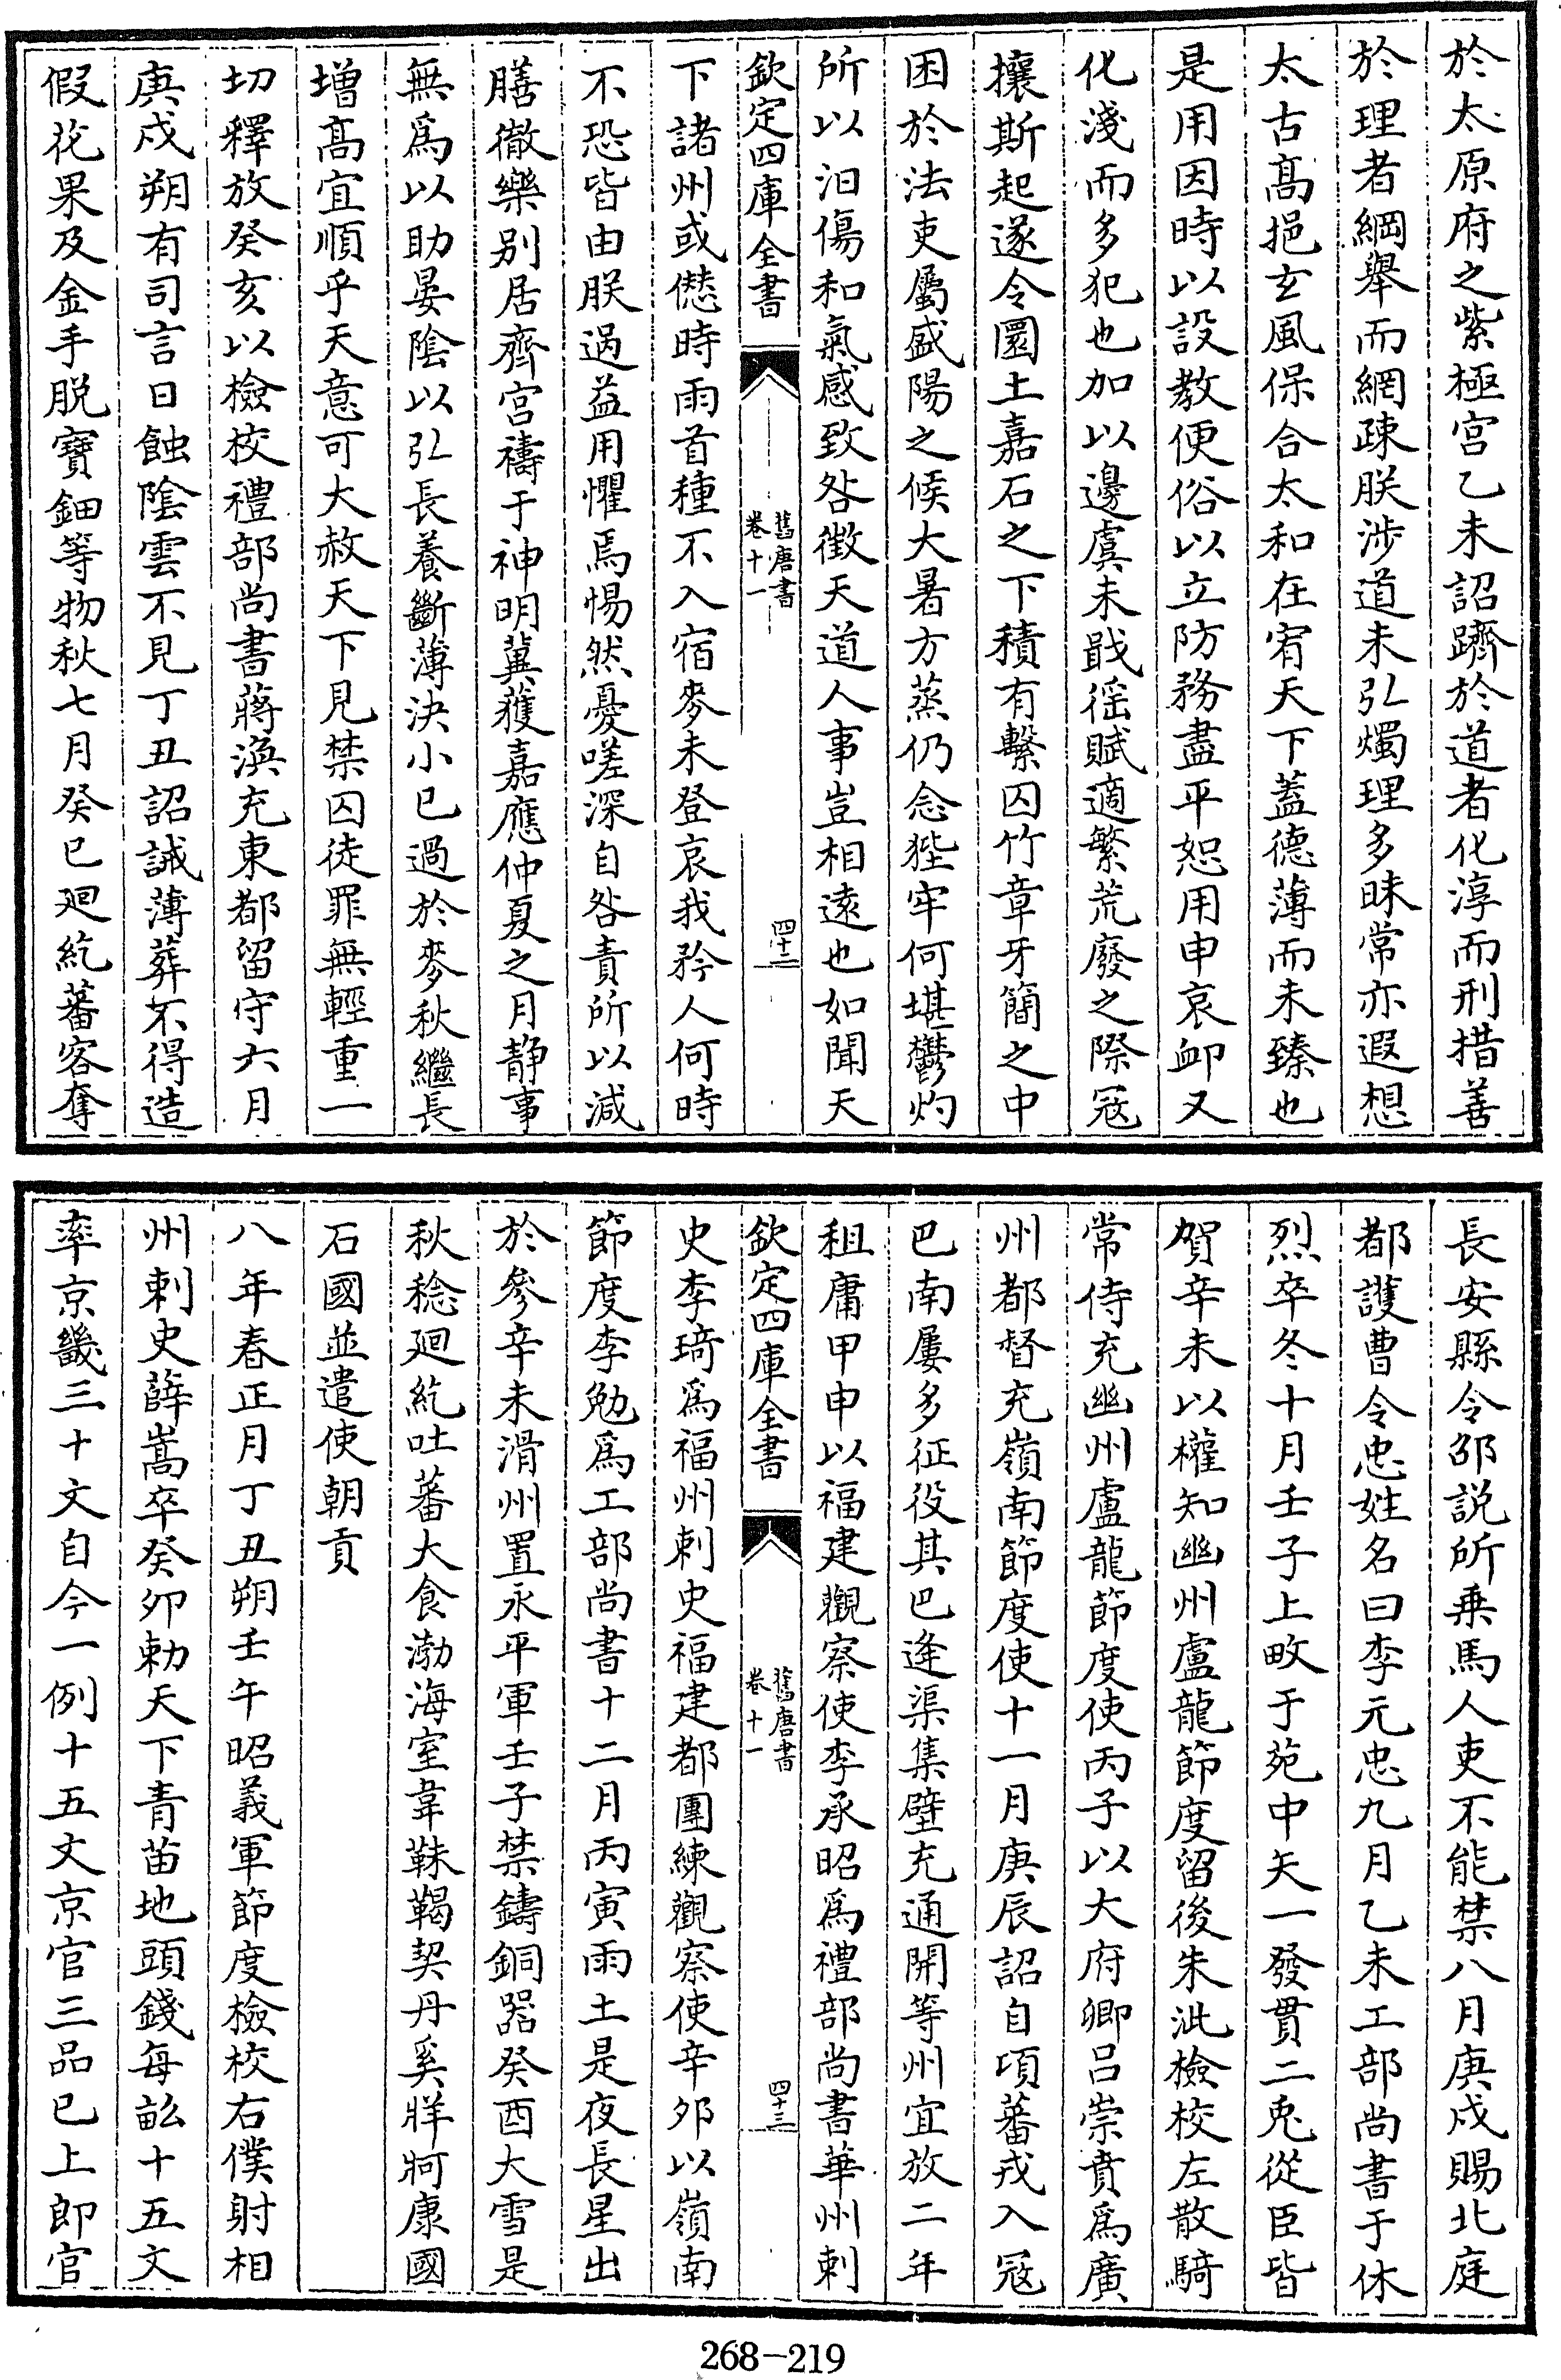 於太原府之紫極宫乙未詔躋於道者化淳而刑措善
於理者綱舉而網疎朕涉道未弘燭理多昧常亦遐想
太古髙挹玄風保合太和在宥天下蓋德薄而未臻也
是用因時以設教便俗以立防務盡平恕用申哀䘏又
化淺而多犯也加以邊虞未戢徭賦適繁荒廢之際寇
攘斯起遂令圜土嘉石之下積有繫囚竹章牙簡之中
困於法吏屬盛陽之候大暑方蒸仍念狴牢何堪鬱灼
所以汩傷和氣感致咎徵天道人事豈相遠也如聞天
欽定四庫全書
舊唐書
卷十一
四十二
下諸州或愆時雨首種不入宿麥未登哀我矜人何時
不恐皆由朕過益用懼焉惕然憂嗟深自咎責所以減
膳徹樂别居齊宫禱于神明冀獲嘉應仲夏之月静事
無爲以助晏陰以弘長養斷薄決小已過於麥秋繼長
増髙宜順乎天意可大赦天下見禁囚徒罪無輕重一
切釋放癸亥以檢校禮部尚書蔣渙充東都留守六月
庚戌朔有司言日蝕陰雲不見丁丑詔誡薄葬不得造
假花果及金手脱寶鈿等物秋七月癸巳廻紇蕃客奪
長安縣令邵説所乗馬人吏不能禁八月庚戌賜北庭
都護曹令忠姓名曰李元忠九月乙未工部尚書于休
烈卒冬十月壬子上畋于苑中矢一發貫二兎從臣皆
賀辛未以權知幽州盧龍節度留後朱泚檢校左散騎
常侍充幽州盧龍節度使丙子以大府卿吕崇賁爲廣
州都督充嶺南節度使十一月庚辰詔自頃蕃戎入寇
巴南屢多征役其巴達渠集壁充通開等州宜放二年
租庸甲申以福建觀察使李承昭爲禮部尚書華州刺
欽定四庫全書
舊唐書
卷十一
四十三
史李琦爲福州刺史福建都團練觀察使辛夘以嶺南
節度李勉爲工部尚書十二月丙寅雨土是夜長星出
於參辛未滑州置永平軍壬子禁鑄銅器癸酉大雪是
秋稔廻紇吐蕃大食渤海室韋靺鞨契丹奚牂牁康國
石國並遣使朝貢
八年春正月丁丑朔壬午昭義軍節度檢校右僕射相
州刺史薛嵩卒癸卯勅天下青苗地頭錢每畝十五文
率京畿三十文自今一例十五文京官三品已上郎官
268-219